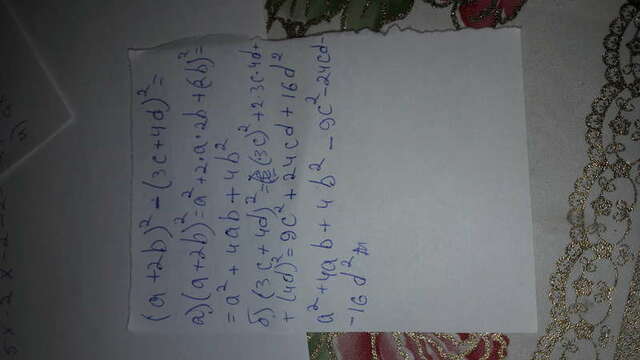 (a+2b)² - (3c+4d)² =
а) (a+2b)² = a² + 2·a·2b + (2b)² =
= a² + 4ab + 4b²
б) (3c+4d)² = (3c)² + 2·3c·4d +
+ (4d)² = 9c² + 24cd + 16d²
a² + 4ab + 4b² - 9c² - 24cd -
- 16d²